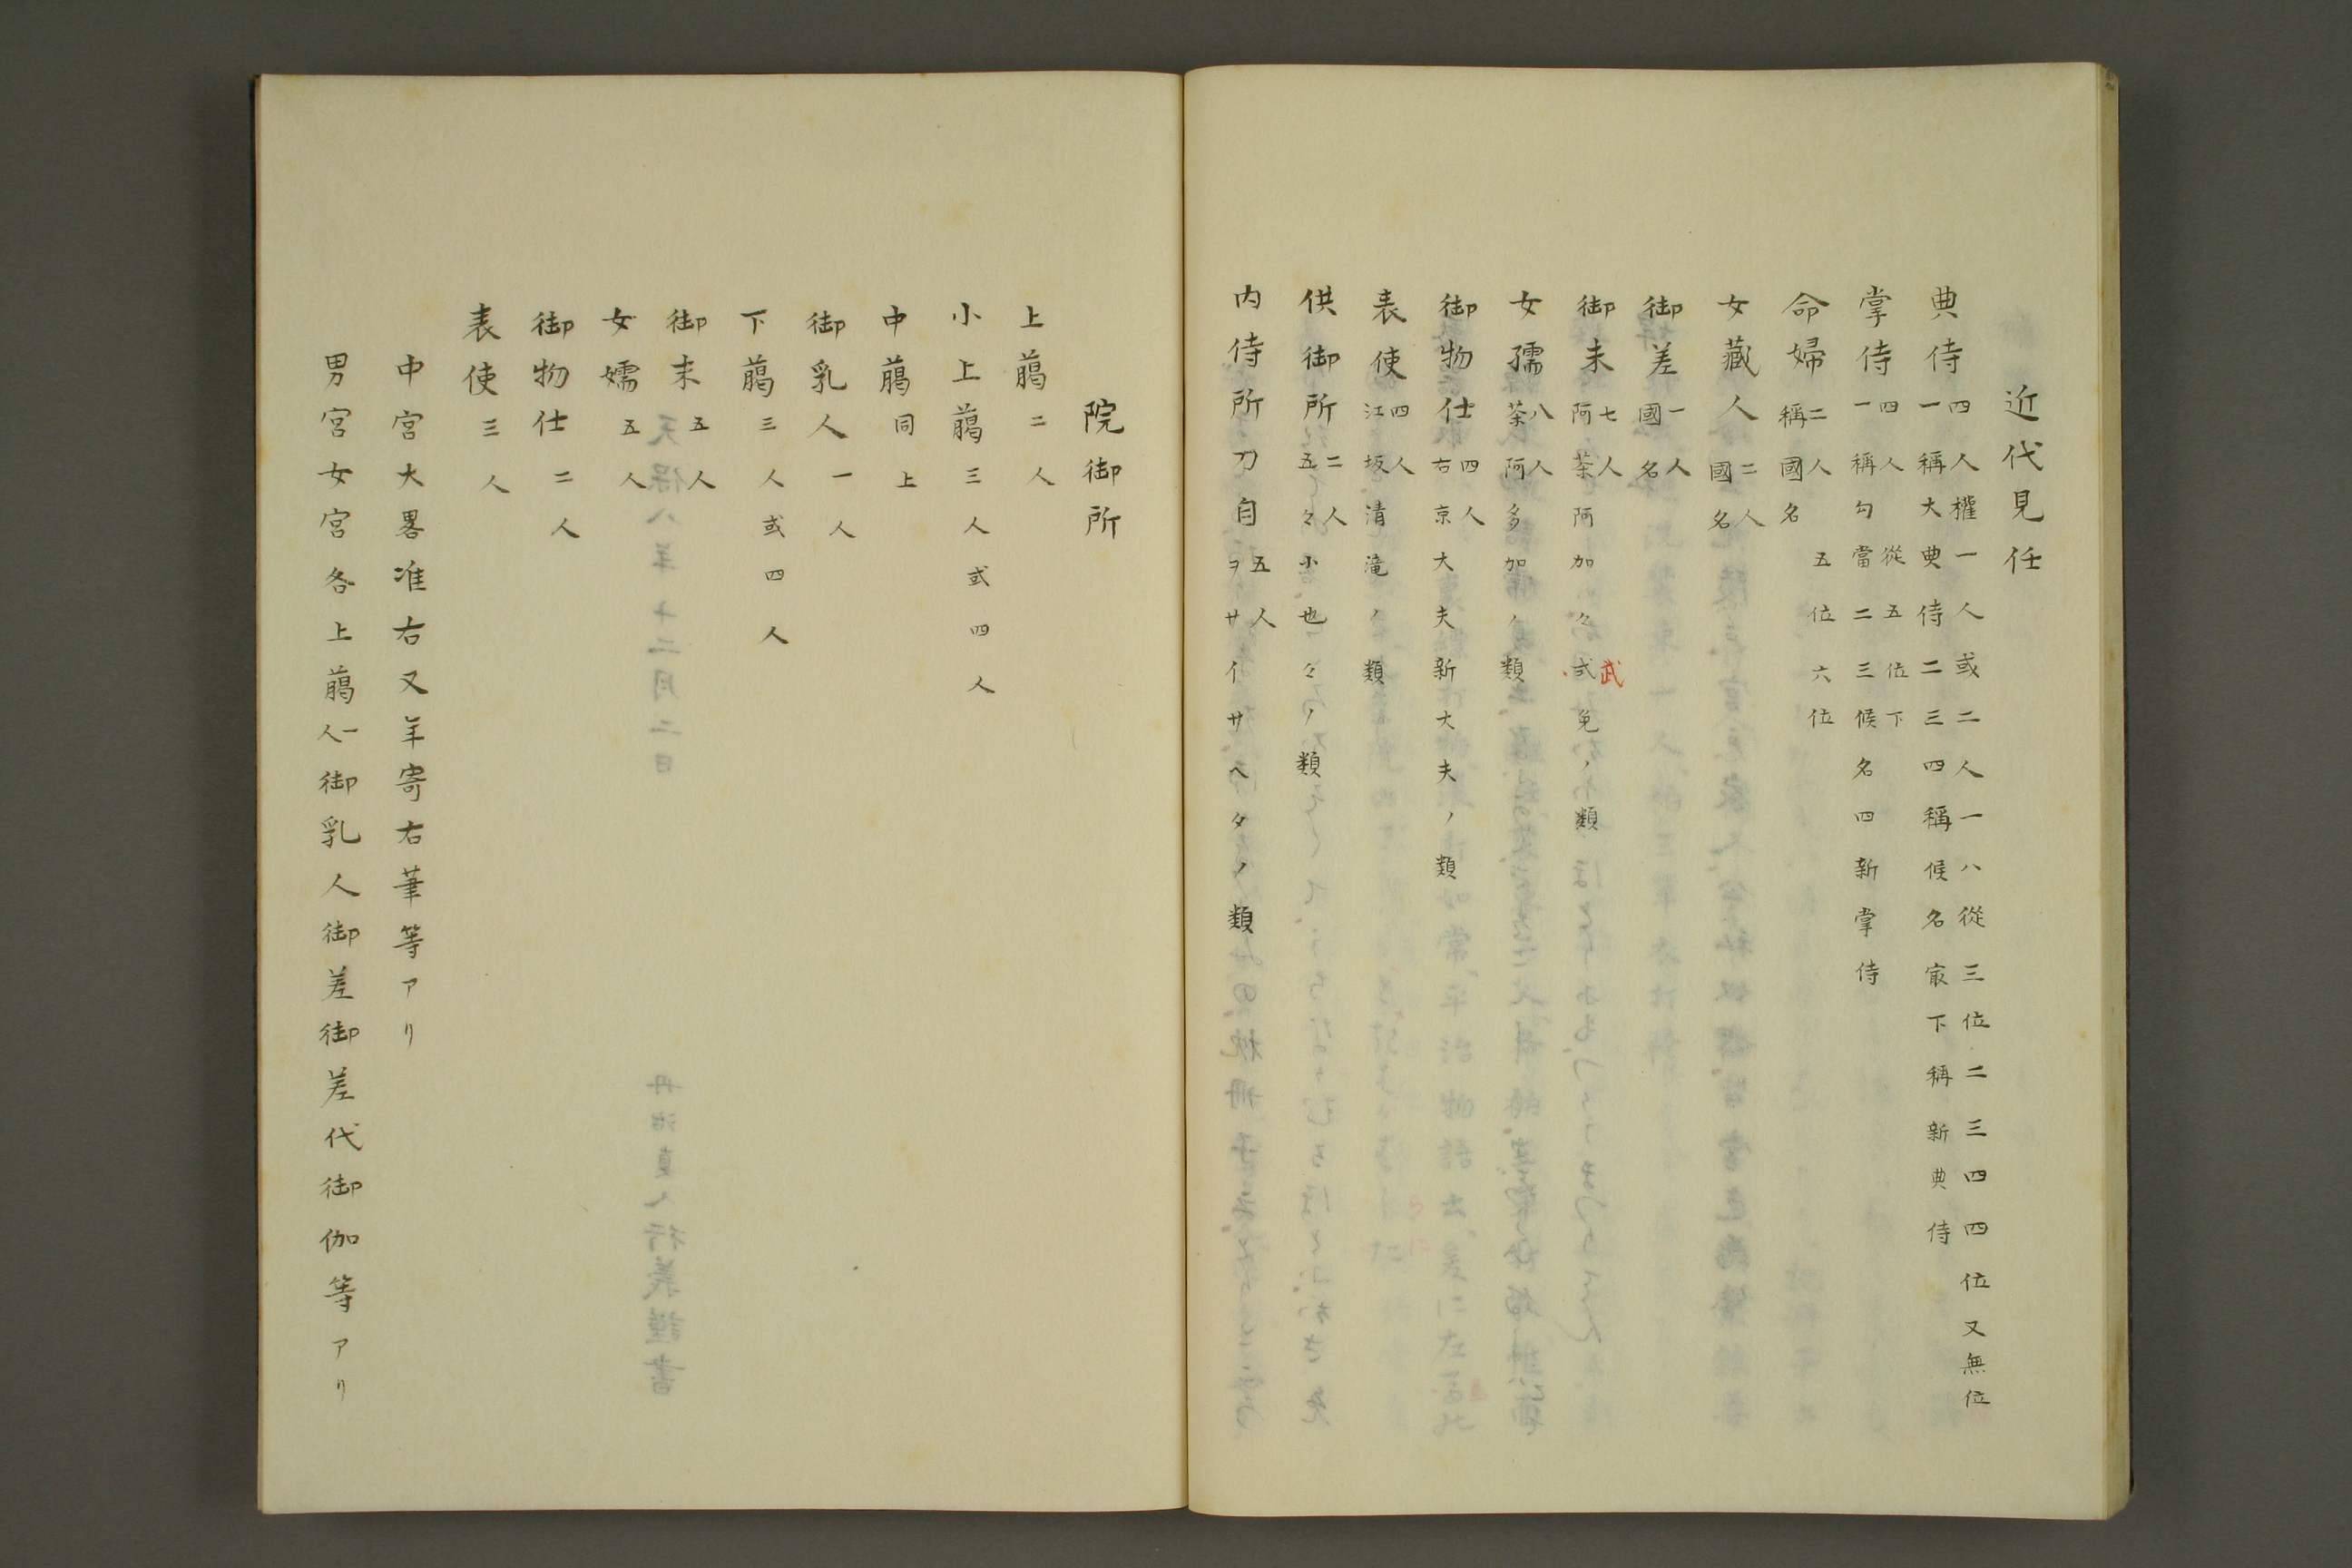 近代見任
典侍 四人權一人或二人一八從三位二三四四位又無位
一稱大典侍二三四稱候名㝡下稱新典侍
掌侍 四人從五位下
一稱勾當二三候名四新掌侍
命婦 二人五位六位
稱國名
女藏人 二人
國名
御差 一人
國名
御末 七人
阿茶阿加々弍免ノ類
武
女孺 八人
茶阿多加ノ類
御物仕 四人
右京大夫新大夫ノ類
表使 四人
江坂清滝ノ類
供御所 二人
五々小也々ノ類
内侍所刀自 五人
ヲサイサヘタノ類
院御所
上﨟 二人
小上﨟 三人或四人
中﨟 同上
御乳人 一人
下﨟 三人或四人
御末 五人
女嬬 五人
御物仕 二人
表使 三人
中宮大畧准右又年寄右筆等アリ
男宮女宮各上﨟一人御乳人御差御差代御伽等アリ